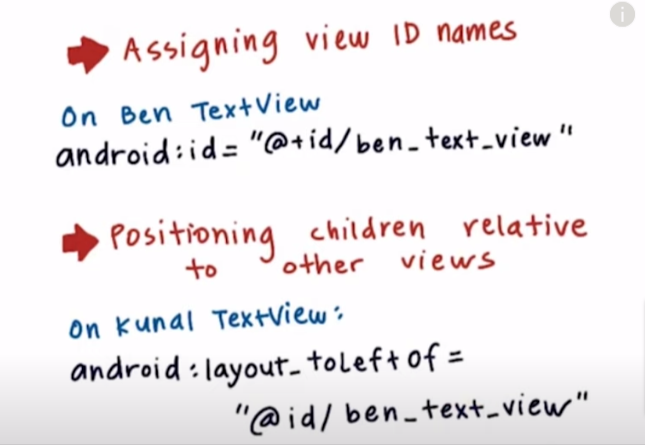 Assigning view ID names
On Ben TextView
android:id= "@+id/ben_text_view"
Positioning children relative
to other views
On Kunal TextView:
android:layout_toLeftOf=
"@id/ben_text_view"